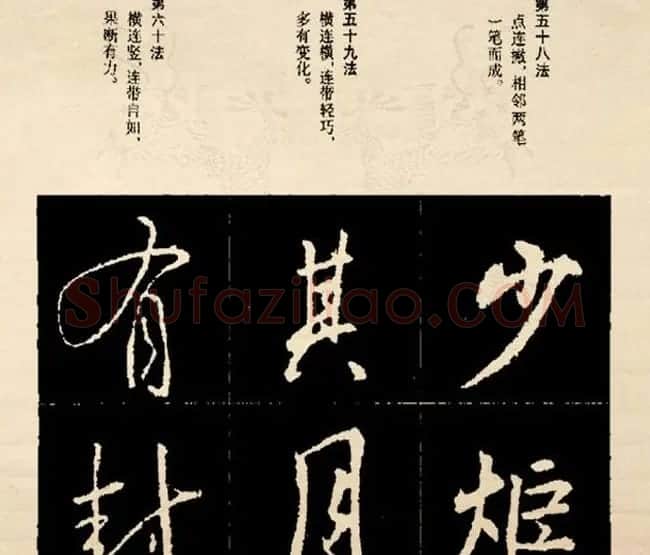 第五十八法
点连撇，相邻两笔
一笔而成。
第五十九法
横连横，连带轻巧，
多有变化。
第六十法
横连竖，连带自如，
果断有力。
少
其
有
月
封
Shufaziliao.COM